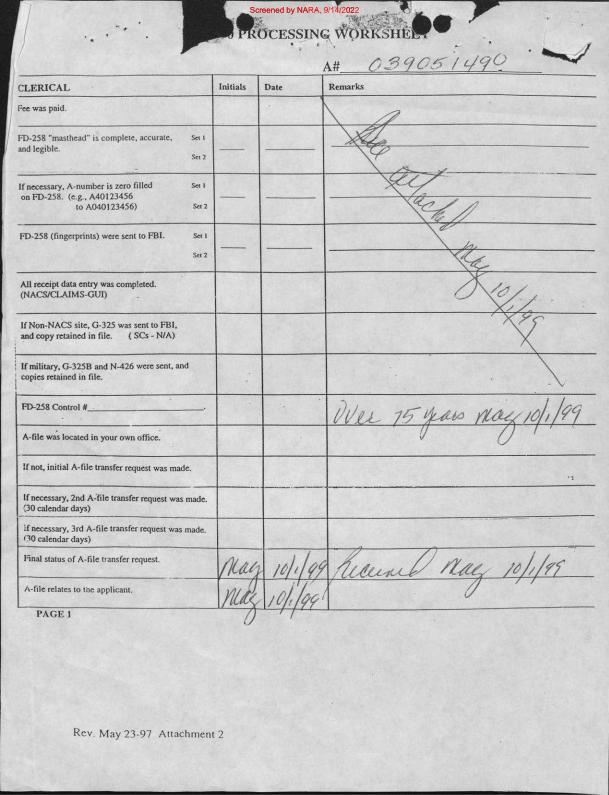 Screened by NARA, 9/14/2022
PROCESSING WORKSHEET
A# 039051490
CLERICAL Initials Date Remarks
Fee was paid.
FD-258 "masthead" is complete, accurate, Set 1
and legible.
Set 2
See attached May 10/1/99
If necessary, A-number is zero filled Set 1
on FD-258. (e.g., A40123456
to A040123456) Set 2
FD-258 (fingerprints) were sent to FBI. Set 1
Set 2
All receipt data entry was completed.
(NACS/CLAIMS-GUI)
If Non-NACS site, G-325 was sent to FBI,
and copy retained in file. ( SCs - N/A)
If military, G-325B and N-426 were sent, and
copies retained in file.
FD-258 Control # Over 75 years May 10/1/99
A-file was located in your own office.
If not, initial A-file transfer request was made.
If necessary, 2nd A-file transfer request was made.
(30 calendar days)
If necessary, 3rd A-file transfer request was made.
(30 calendar days)
Final status of A-file transfer request. May 10/1/99 Received May 10/1/99
A-file relates to the applicant. May 10/1/99
PAGE 1
Rev. May 23-97 Attachment 2